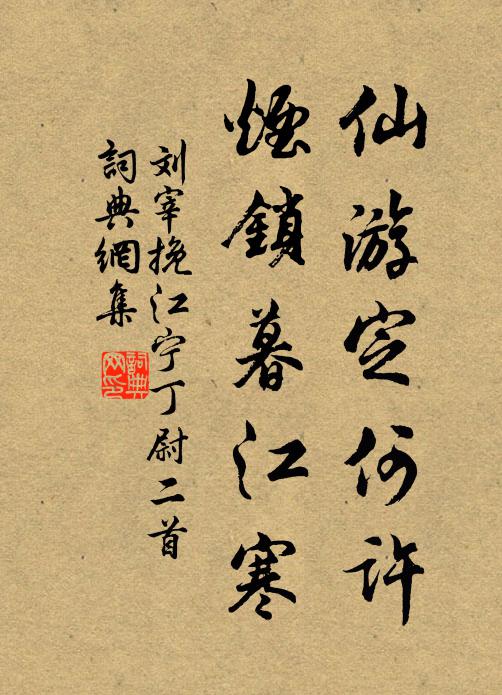 仙游定何許
煙鎖暮江寒
刘宰挽江宁丁尉二首
詞典網集